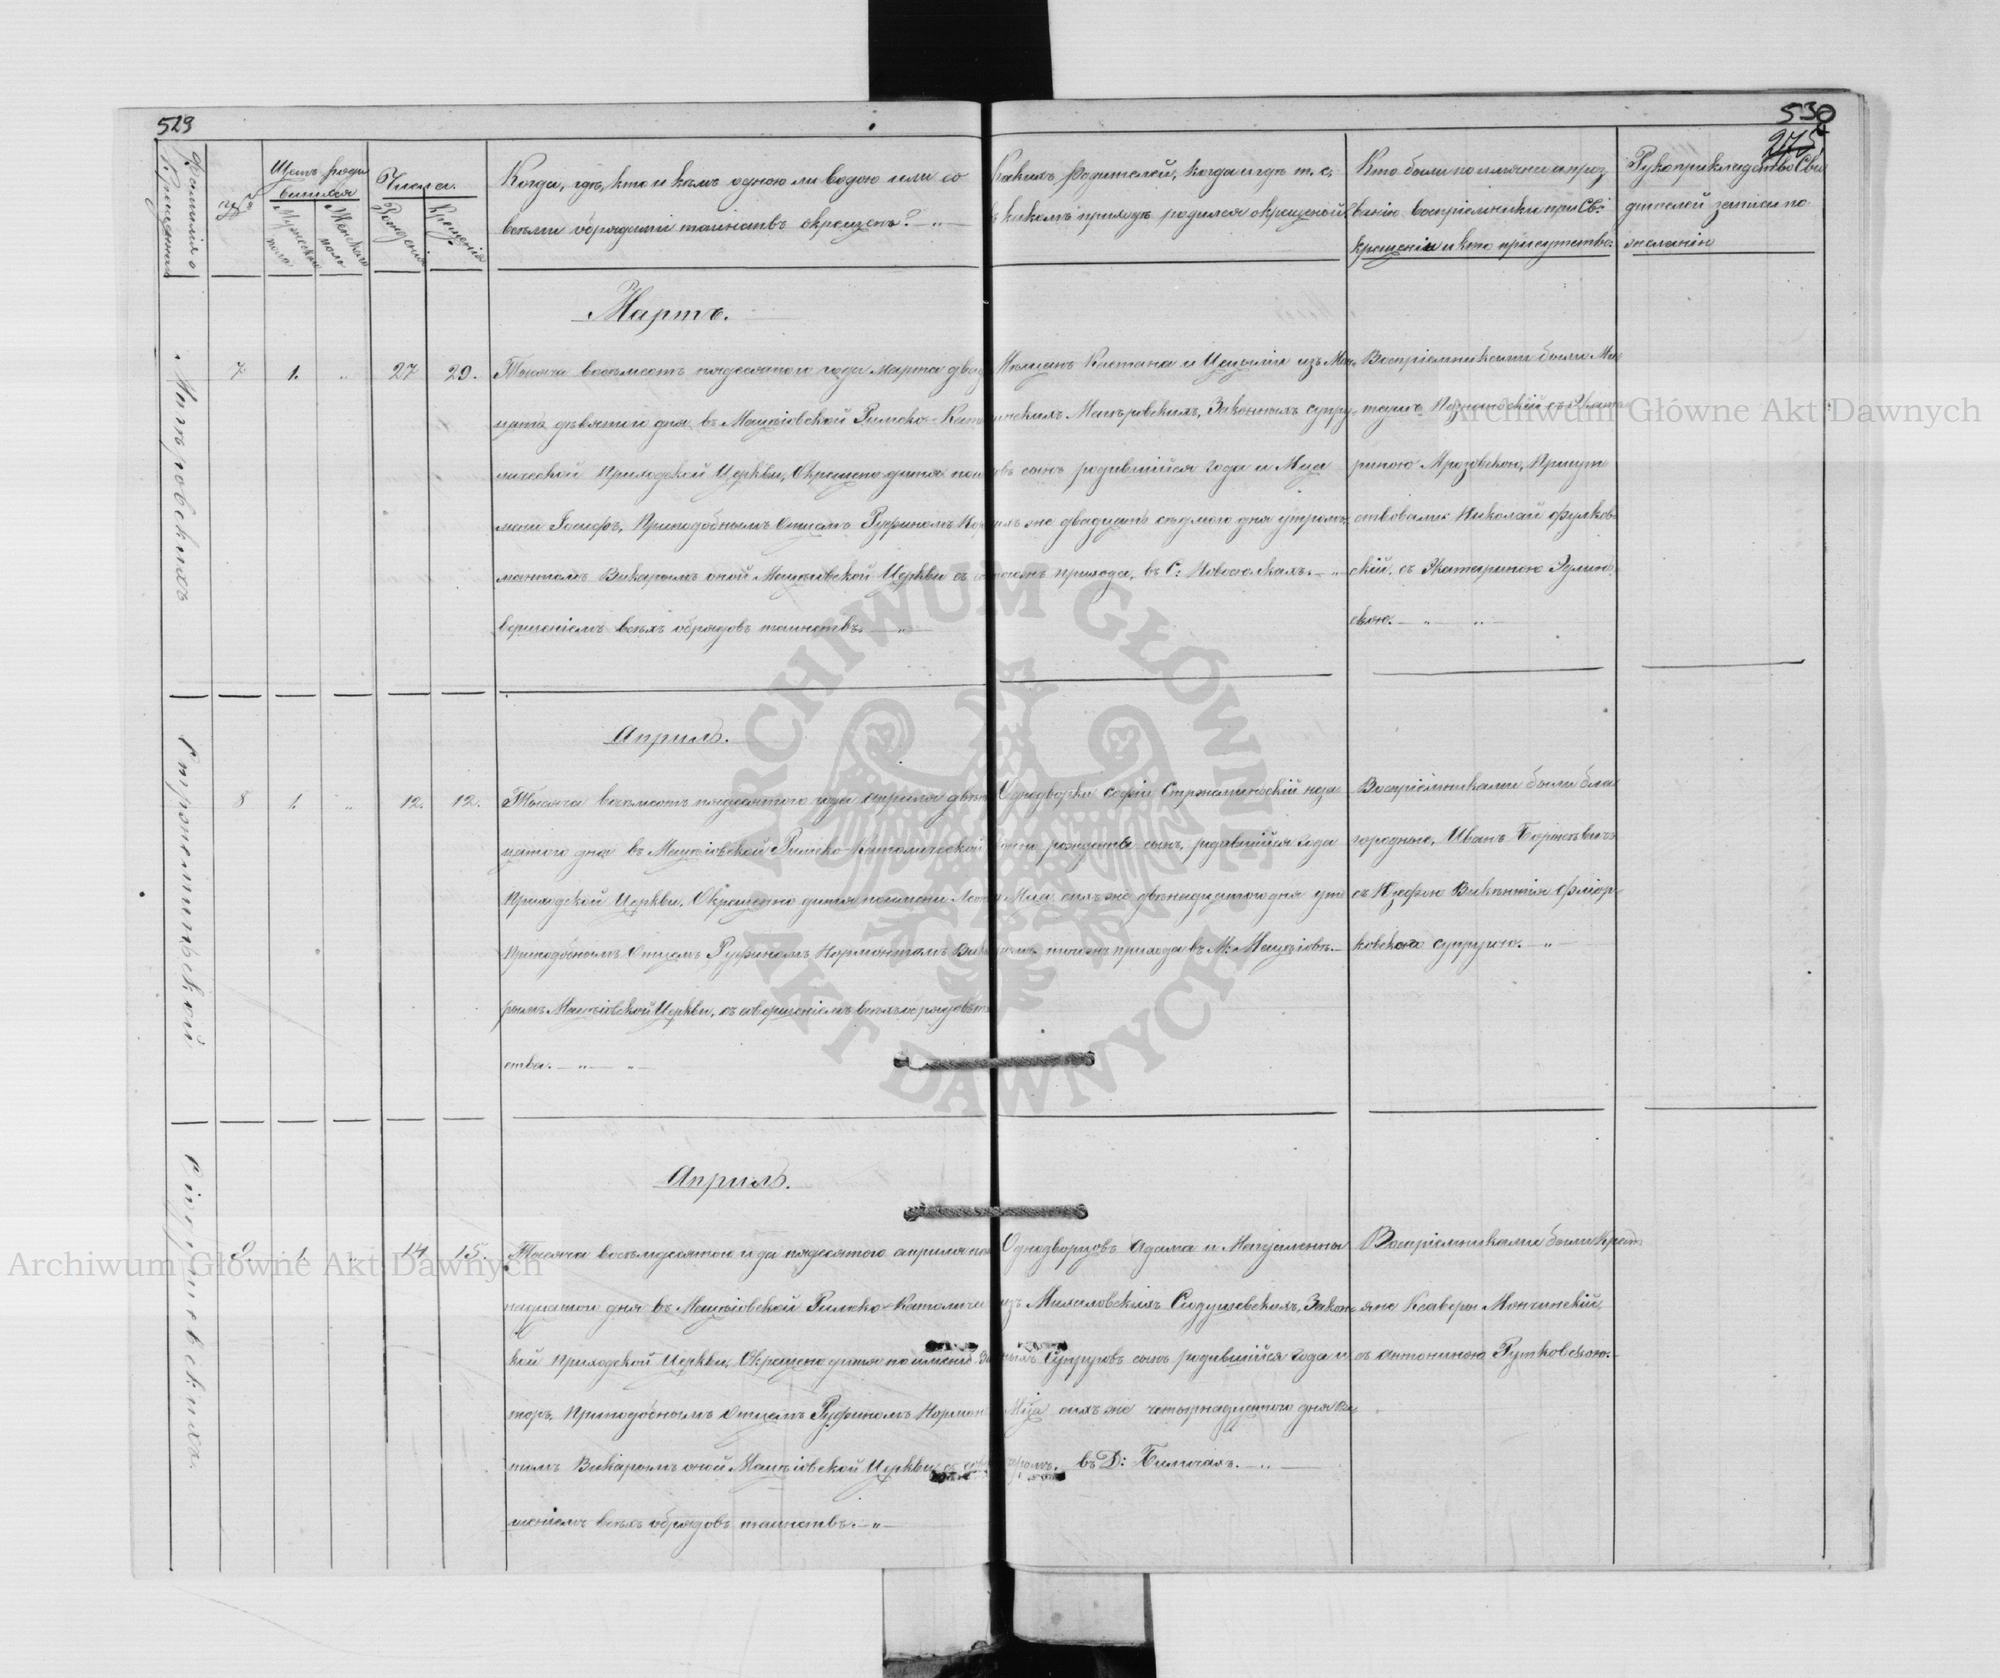 529
530
275
Фамилія
Крещенных
№
Щетъ роди
вшихся
Мужескаго
пола
Женскаго
пола
Числа.
Рожденія
Крещенія
Когда, гдѣ, кто и кѣмъ одною ли водою или со
всѣми обрядами таинствъ окрещенъ?
Какихъ Родителей, когда и гдѣ т. е.
въ какомъ приходѣ родился окрещеной
Кто были по имѣни и проз
ванію воспріемники при Св:
крещеніи и кто присутство:
Рукоприкладство Сви
дителей записи по
желанію
Мартъ.
7 1. 27 29.
Тысяча восемсотъ пядесятого года Марта двад
цать дѣвятого дня въ Мацѣіовской Римско-Като
лической Приходской Церкви, Окрещено дитя по и
мени Іосифъ, Приподобнымъ Отцемъ Руфиномъ Нор
мантомъ Викарымъ оной Мацѣіовской Церкви съ со
вершеніемъ всѣхъ обрядовъ таинствъ.
Мѣщанъ Каетана и Цецыліи изъ
Законныхъ супру
говъ сынъ родившійся года и Мца
сихъ же двадцать седмого дня утромъ
прихода, въ С: Новоселкахъ.
Воспріемниками были
съ Екате
риною Мрозовскою, Присут
ствовали: Николай Фулков
скій съ Екатериною
скою.
Апрель.
8 1. 12. 12.
Тысяча восемсотъ пядесятого года Апреля двѣна
цатого дня въ Мацѣіовской Римско-Католической
Приходской Церкви, Окрещенно дитя по имени Леонъ
Приподобнымъ Отцемъ Руфиномъ Нормантомъ Вика
рымъ Мацѣіовской Церкви, съ совершеніемъ всѣхъ обрядовъ
ства.
Однодворки Софіи Стржеминской неза
конно рожденъ сынъ, родившійся года
Мца сихъ же двѣнадцатого дня ут
ромъ тогожъ прихода въ М: Мацѣіовѣ.
Воспріемниками были бла
городные, Иванъ
съ Юзефою Викентія Фліор
ковского супругою.
Апрель.
9 1. 14 15.
Тысяча восемдесятого года пядесятого апреля пят
надцатого дня въ Мацѣіовской Римско-Католичес
кой Приходской Церкви, Окрещено дитя по имени
торъ, Приподобнымъ Отцемъ Руфиномъ Норман
томъ Викарымъ оной Мацѣіовской Церкви съ совер
шеніемъ всѣхъ обрядовъ таинствъ.
Однодворцовъ Адама и Магдалены
изъ Михаловскихъ Сюдушевскихъ, Закон
ныхъ Супруговъ сынъ родившійся года и
Мца сихъ же четырнадцатого дня
въ Д: Биличахъ.
Воспріемниками были Крест
яне Ксаверы Мончинскій,
съ Антониною Рутковскою.
Стржеминьской
Archiwum Główne Akt Dawnych
Archiwum Główne Akt Dawnych
ARCHIWUM GŁÓWNE AKT DAWNYCH